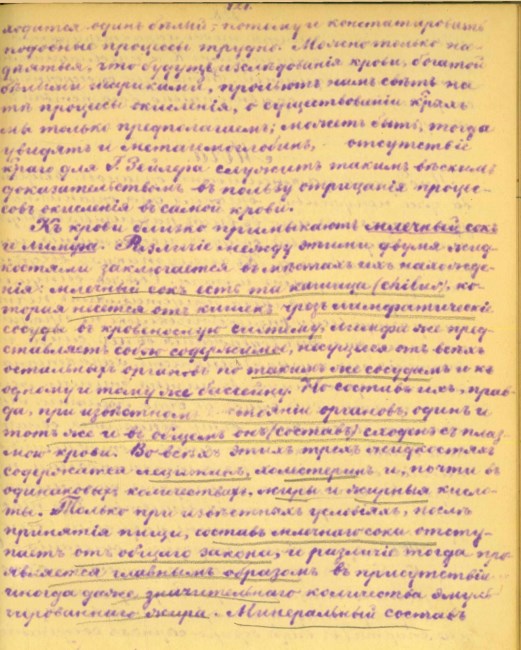 121.
ходится одинъ бѣлый; потому и констатировать
подобные процессы трудно. Можно только на-
дѣяться, что будутъ изслѣдованія крови, богатой
бѣлыми шариками, прольютъ намъ свѣтъ на
тѣ процессы окисленія, о существованіи к-рыхъ
мы только предполагаемъ; можетъ быть, тогда
увидятъ и метагемоглобинъ, отсутствіе
к-раго для Г. Зейлера служитъ такимъ вѣскимъ
доказательствомъ въ пользу отрицанія процес-
совъ окисленія въ самой крови.
Къ крови близко примыкаютъ млечный сокъ
и лимфа. Различіе между этими двумя жид-
костями заключается въ мѣстахъ ихъ нахожде-
нія: млечный сокъ есть та кашица (chilus), ко-
торая несется отъ кишекъ чрезъ лимфатическіе
сосуды въ кровеносную систему; лимфа же пред-
ставляетъ собою содержимое, несущееся отъ всѣхъ
остальныхъ органовъ по такимъ же сосудамъ и къ
одному и тому же бассейну. По составу ихъ, прав-
да, при извѣстномъ стояніи органовъ, одинъ и
тотъ же и въ общемъ онъ (составъ) сходенъ съ плаз-
мою крови. Во всѣхъ этихъ трехъ жидкостяхъ
содержатся лецитинъ, холестеринъ и, почти въ
одинаковыхъ количествахъ, жиры и жирныя кисло-
ты. Только при извѣстныхъ условіяхъ, послѣ
принятія пищи, составъ млечнаго сока отсту-
паетъ отъ общаго закона, и различіе тогда про-
является главнымъ образомъ въ присутствіи
иногда даже значительнаго количества эмуль-
гированнаго жира. Минеральный составъ